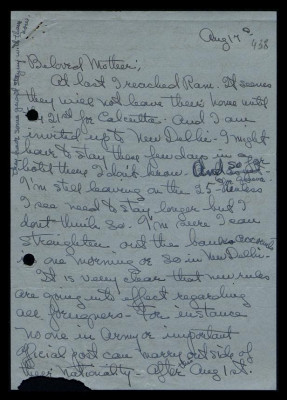 Aug 17 - 438
Beloved Mother;
At last I reached Ram. It seems
they will not leave there home until
the 21st for Calcutta. And I am
invited up to New Delhi. I might
have to stay there few days in an
hotel there I don't know. And so far
I'm still leaving on the 25 - Unless
I see need to stay longer but I
don't think so. I'm sure I can
straighten out the bank
in one morning or so in New Delhi -
It is very clear that new rules
are going into effect regarding
all foreigners - For instance
no one in Army or important
official post can marry outside of
their nationality - after Aug 1st.